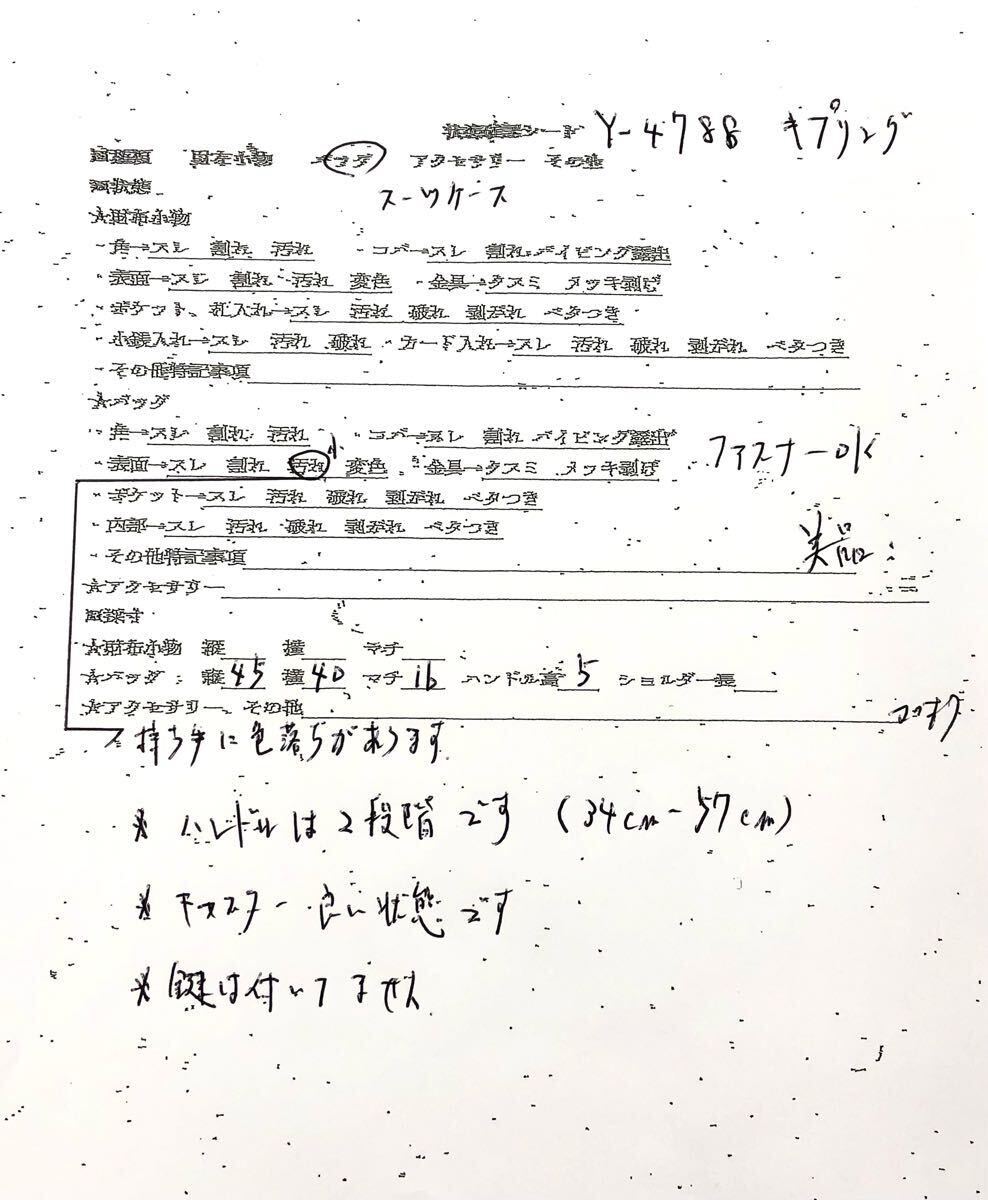 状態確認シード Y-4788 キプリング
□種類 財布小物 バッグ アクセサリー その他
スーツケース
□状態
☆財布小物
・角→スレ 割れ 汚れ ・コバ→スレ 割れ パイピング露出
・表面→スレ 割れ 汚れ 変色 ・金具→クスミ メッキ剥げ
・ポケット、札入れ→スレ 汚れ 破れ 剥がれ ベタつき
・小銭入れ→スレ 汚れ 破れ ・カード入れ→スレ 汚れ 破れ 剥がれ ベタつき
・その他特記事項
☆バッグ
・角→スレ 割れ 汚れ ・コバ→スレ 割れ パイピング露出
・表面→スレ 割れ 汚れ 小 変色 ・金具→クスミ メッキ剥げ ファスナーOK
・ポケット→スレ 汚れ 破れ 剥がれ ベタつき
・内部→スレ 汚れ 破れ 剥がれ ベタつき
・その他特記事項 美品
☆アクセサリー
□採寸
☆財布小物 縦 横 マチ
☆バッグ: 縦 45 横 40 マチ 16 ハンドル高 5 ショルダー長
☆アクセサリー、その他
持ち手に色落ちがあります
※ハンドルは2段階です (34cm-57cm)
※キャスター良い状態です
※鍵は付いてません